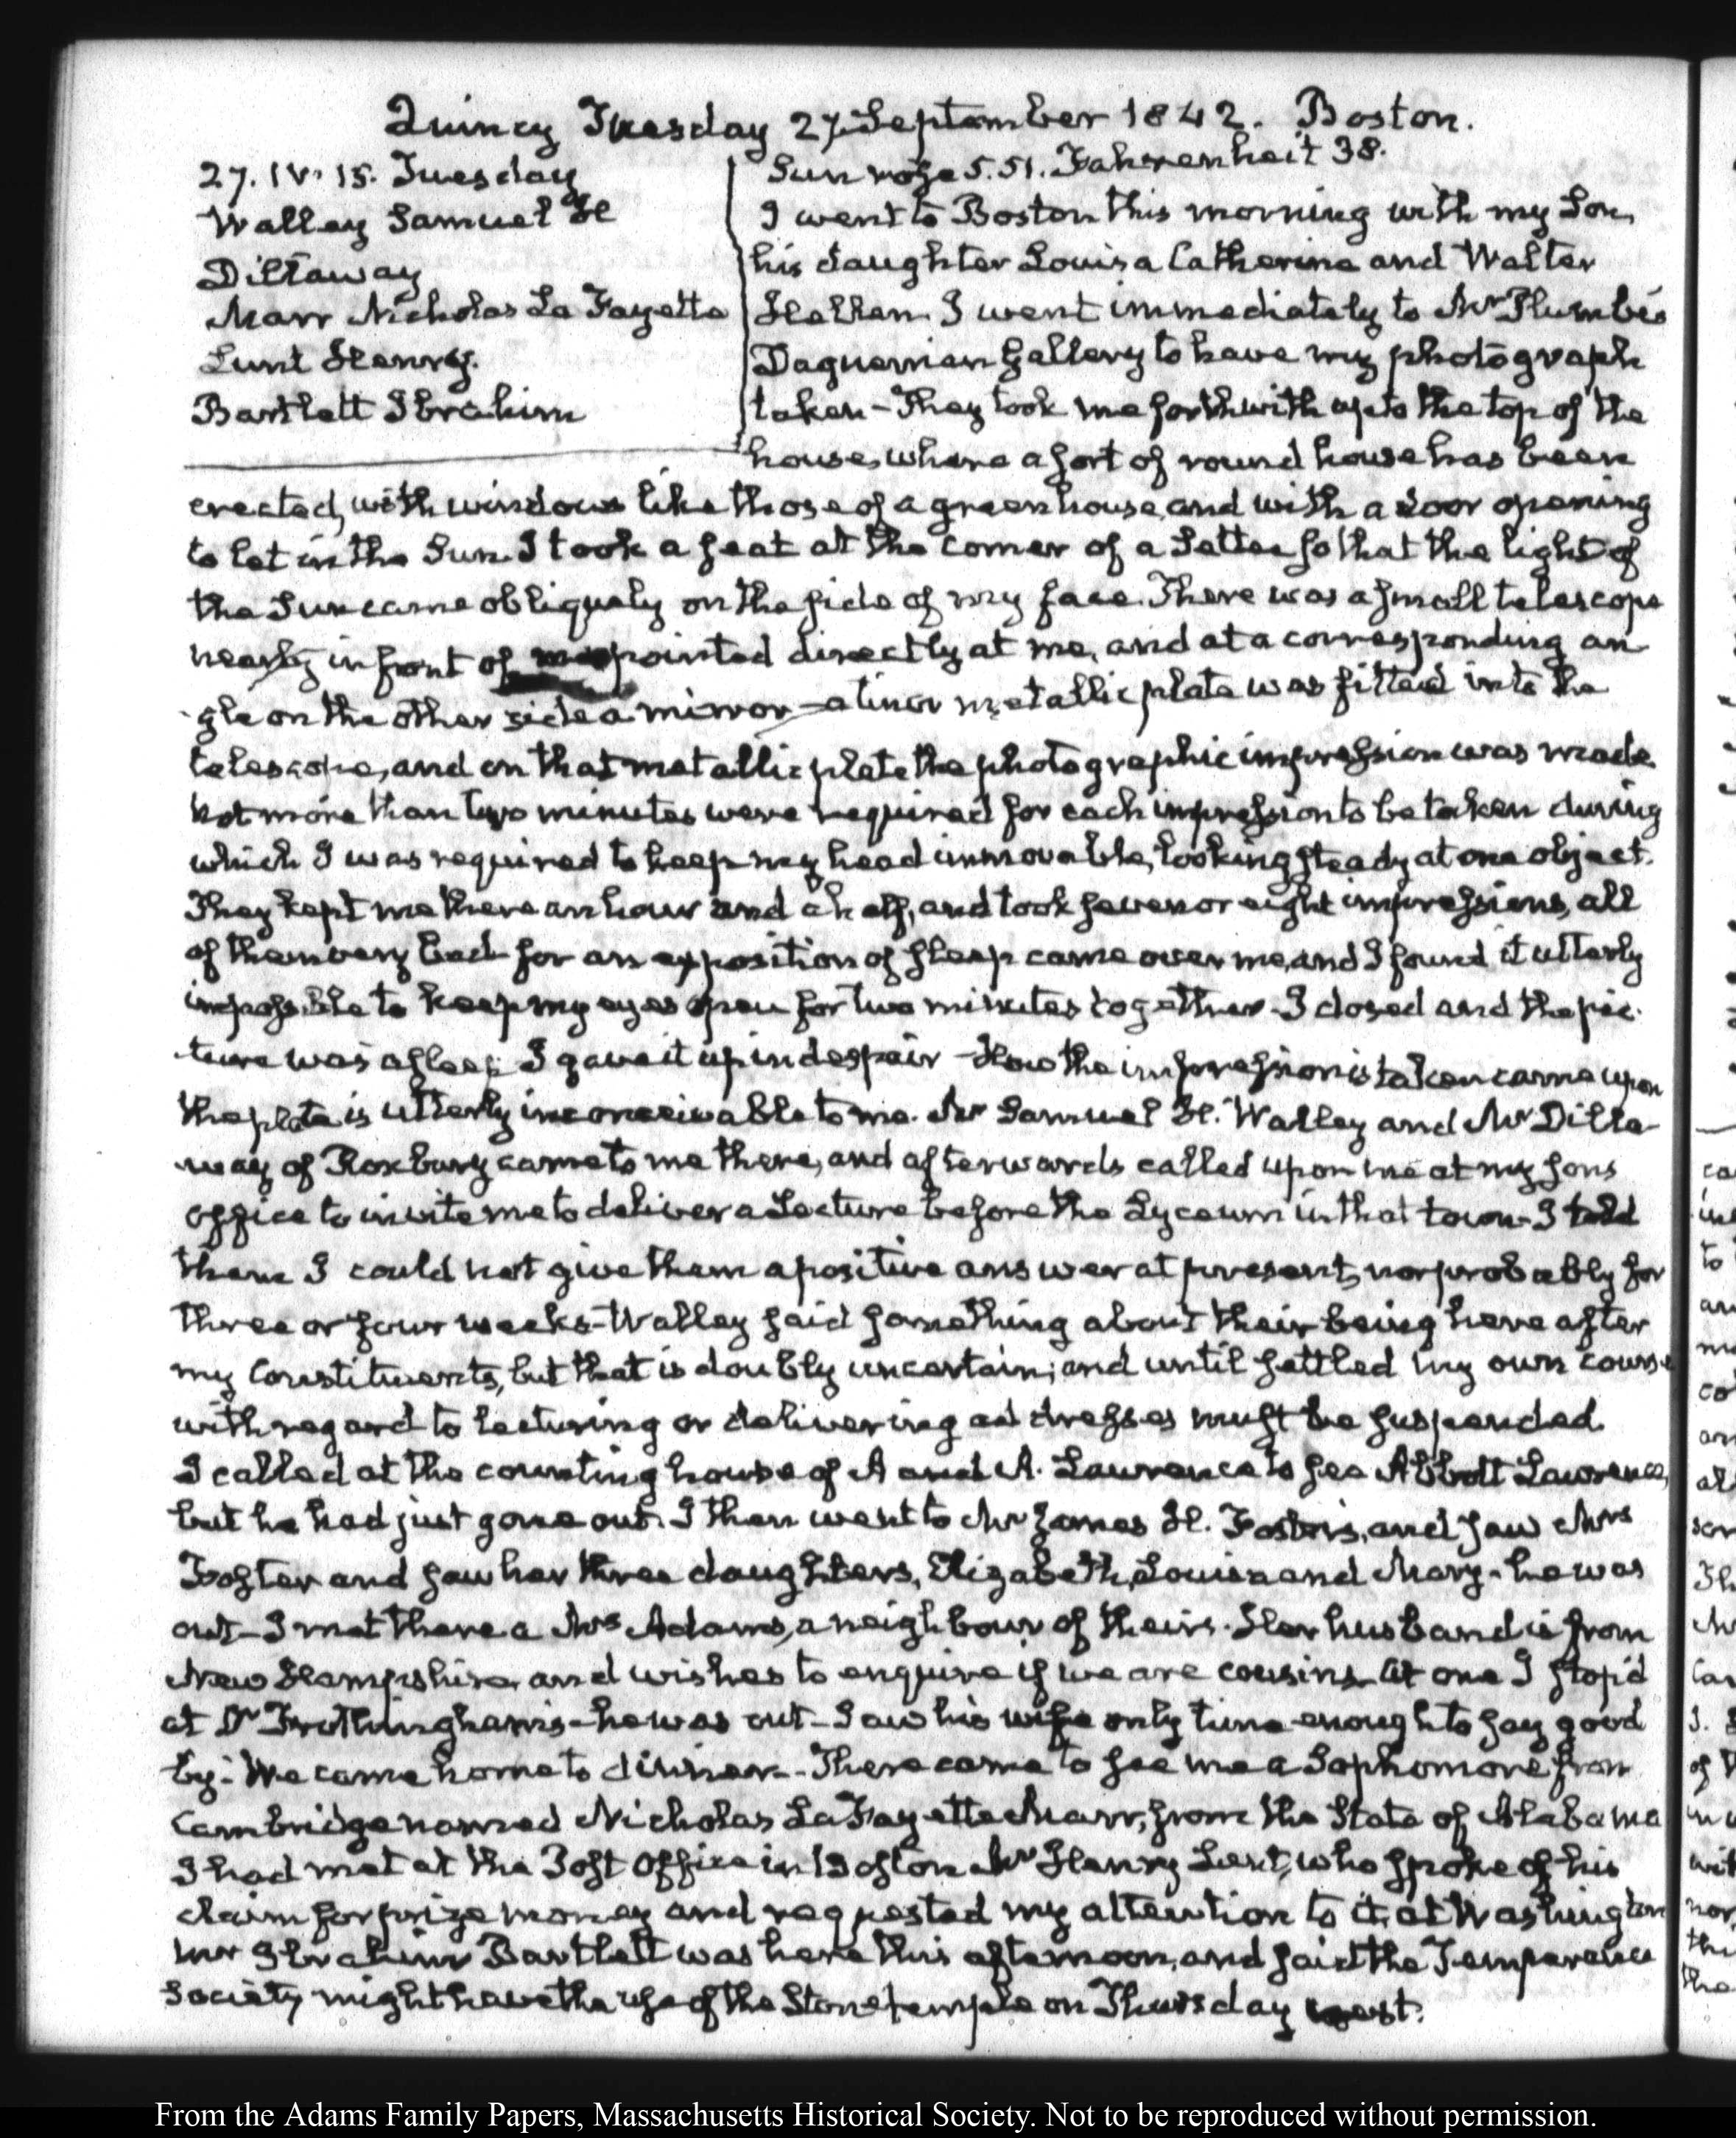 Quincy Tuesday 27. September 1842. Boston.
27. IV. 15. Tuesday
Walley Samuel H
Dillaway
Marr Nicholas La Fayette
Lunt Henry.
Bartlett Ibrahim
Sun rose 5.51. Fahrenheit 38.
I went to Boston this morning with my Son,
his daughter Louisa Catherine and Walter
Hellen. I went immediately to Mr Plumbe's
Daguerrian Gallery to have my photograph
taken - They took me forthwith up to the top of the
house, where a sort of round house has been
erected, with windows like those of a greenhouse, and with a door opening
to let in the Sun. I took a seat at the corner of a Settee so that the light of
the Sun came obliquely on the side of my face. There was a small telescope
nearly in front of pointed directly at me, and at a corresponding an
gle on the other side a mirror - a metallic plate was fitted into the
telescope, and on that metallic plate the photographic impression was made
not more than two minutes were required for each impression to be taken during
which I was required to keep my head immovable, looking steady at one object.
They kept me there an hour and a half, and took seven or eight impressions, all
of them very bad for an exposition of sleep came over me, and I found it utterly
impossible to keep my eyes open for two minutes together - I dosed and the pic
ture was asleep I gave it up in despair - How the impression is taken came upon
the plate is utterly inconceivable to me. Mr Samuel H. Walley and Mr Dilla-
way of Roxbury came to me there, and afterwards called upon me at my sons
office to invite me to deliver a Lecture before the Lyceum in that town - I told
them I could not give them a positive answer at present, nor probably for
three or four weeks - Walley said something about their being here after
my Constituents, but that is doubly uncertain; and until settled my own course
with regard to lecturing or delivering addresses must be suspended
I called at the counting house of A and A. Lawrence to see Abbott Lawrence,
but he had just gone out. I then went to Mr James H. Foster's, and saw Mrs
Foster and saw her three daughters, Elizabeth, Louisa and Mary - he was
out - I met there a Mrs Adams, a neighbour of theirs. Her husband is from
New Hampshire, and wishes to enquire if we are cousins. At one I stop'd
at Dr Frothingham's - he was out - Saw his wife only time enough to say good
by - We came home to dinner - There came to see me a Sophomore from
Cambridge named Nicholas La Fayette Marr, from the State of Alabama
I had met at the Post Office in Boston Mr Henry Lunt, who spoke of his
claim for prize money and requested my attention to it, at Washington
Mr Ibrahim Bartlett was here this afternoon, and said the Temperance
Society might have the use of the Stone temple on Thursday next.
From the Adams Family Papers, Massachusetts Historical Society. Not to be reproduced without permission.